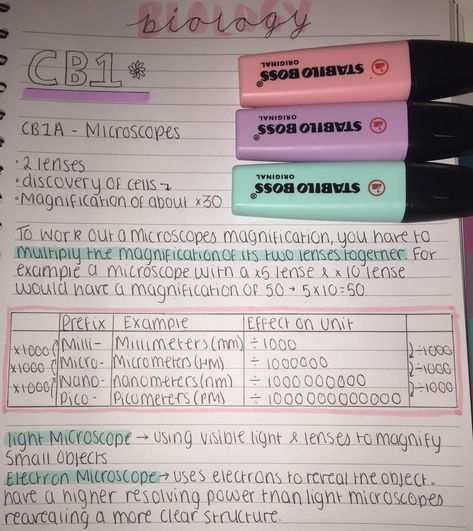 BIOLOGY
biology
CB1*
STABILO BOSS
ORIGINAL
STABILO BOSS
ORIGINAL
STABILO BOSS
ORIGINAL
CB1A - Microscopes
· 2 lenses
· discovery of cells
· Magnification of about x30
To work out a microscopes magnification, you have to
multiply the magnification of its two lenses together. For
example a microscope with a x5 lense & x10 lense
would have a magnification of 50 → 5x10=50
Prefix Example Effect on unit
x1000 Milli- Millimeters (mm) ÷ 1000 ÷1000
x1000 Micro- Micrometers (μm) ÷ 1000000 ÷1000
x1000 Nano- nanometers (nm) ÷ 1000000000 ÷1000
Pico- Picometers (pm) ÷ 1000000000000
light Microscope → using visible light & lenses to magnify
small objects
Electron Microscope → uses electrons to reveal the object.
have a higher resolving power than light microscopes
reavealing a more clear structure.